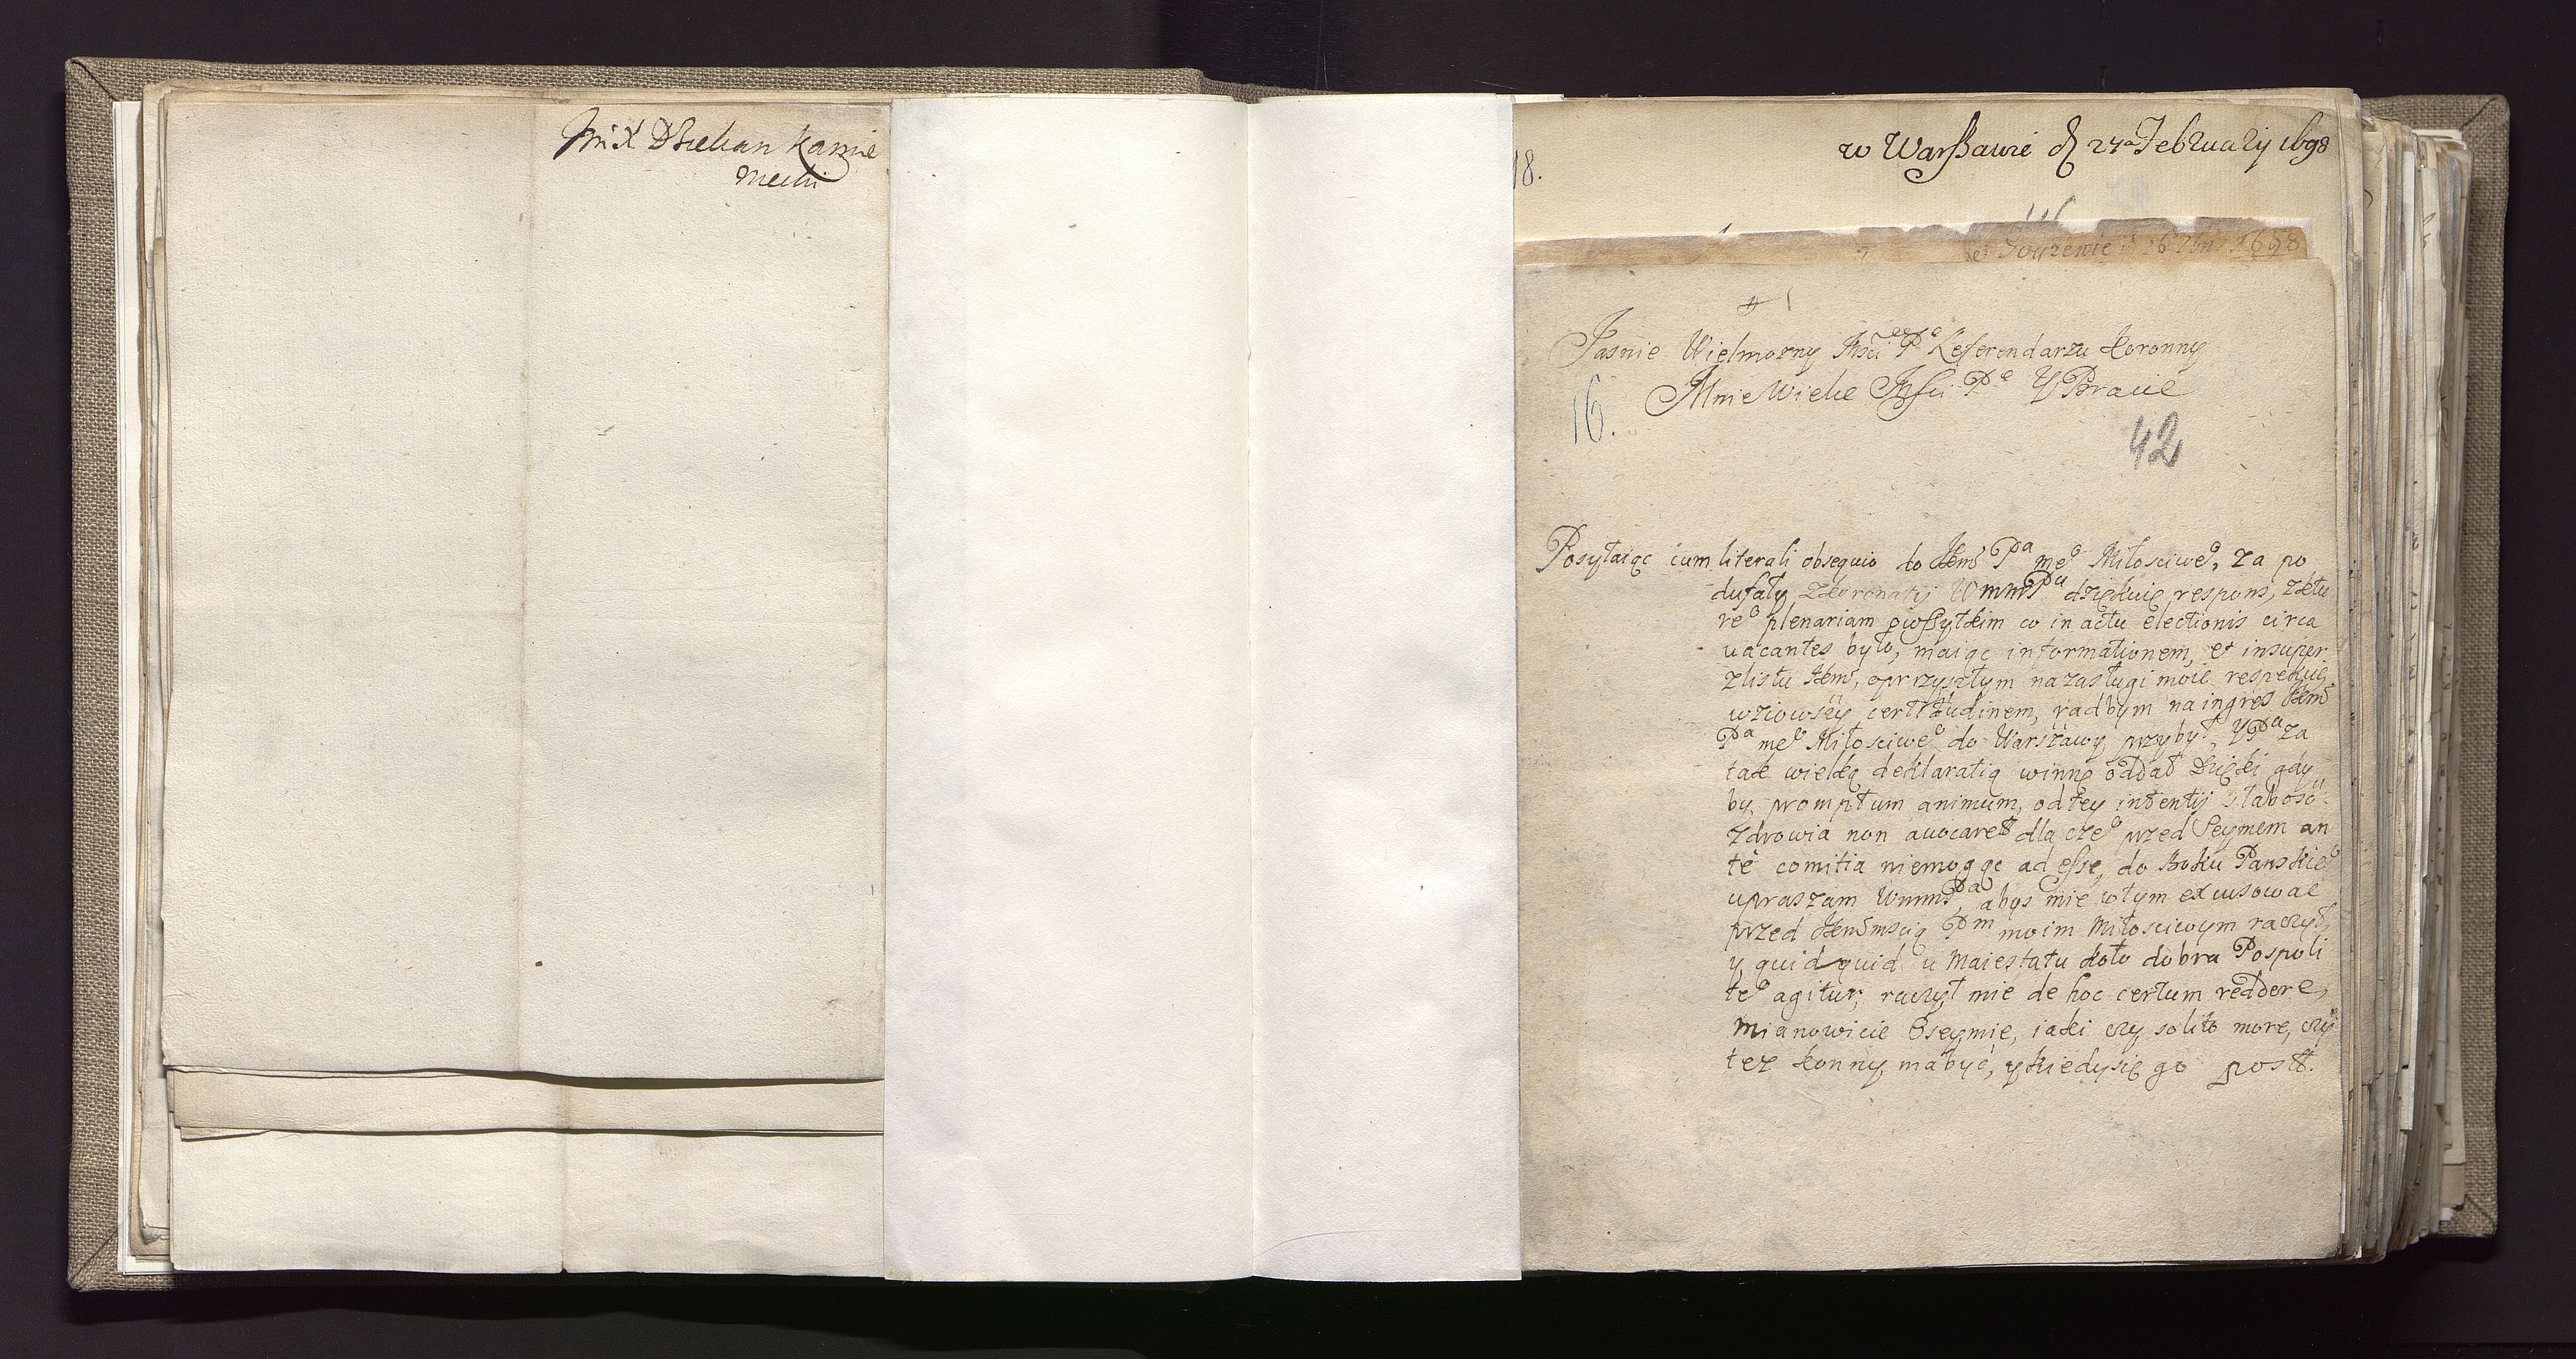 Jmć X Dziekan Kamie
niecki
18.
w Warszawie d 27a February 1698
1698
Jasnie Wielmozny Mści Pe Referendarzu Koronny
Mnie Wielce Mści Pe Y Bracie
16.
42
Posyłaiąc cum literali obsequio do JKmć Pa meo Miłosciweo, za po
dufały Zkoronatij WmmPa dziękuię respons, zktu
reo plenariam owszytkim co in actu electionis circa
vacantes było, maiąc informationem, et insuper
zlistu JKmć, oprzyszłym nazasługi moie respekcie
wziowszy certitudinem, radbym naingres JKmć
Pa meo Miłosciweo do Warszawy przybył, YPa za
tak wielką deklaratią winne oddał Dzięki gdy
by promptum animum, odtey intentij słabosć
Zdrowia non avocaret dla czeo przed Seymem an
te comitia niemogąc ad esse, do Boku Panskieo
upraszam WmmPa, abys mie wtym excusowac
przed JKmśmcią Pm moim Miłosciwym raczył,
y quid quid u Maiestatu koło dobra Pospoli
teo agitur, raczył mie de hoc certum reddere,
mianowicie oseymie, iaki czy solito more, czy
tez konny mabyć, ykiedysię go post.